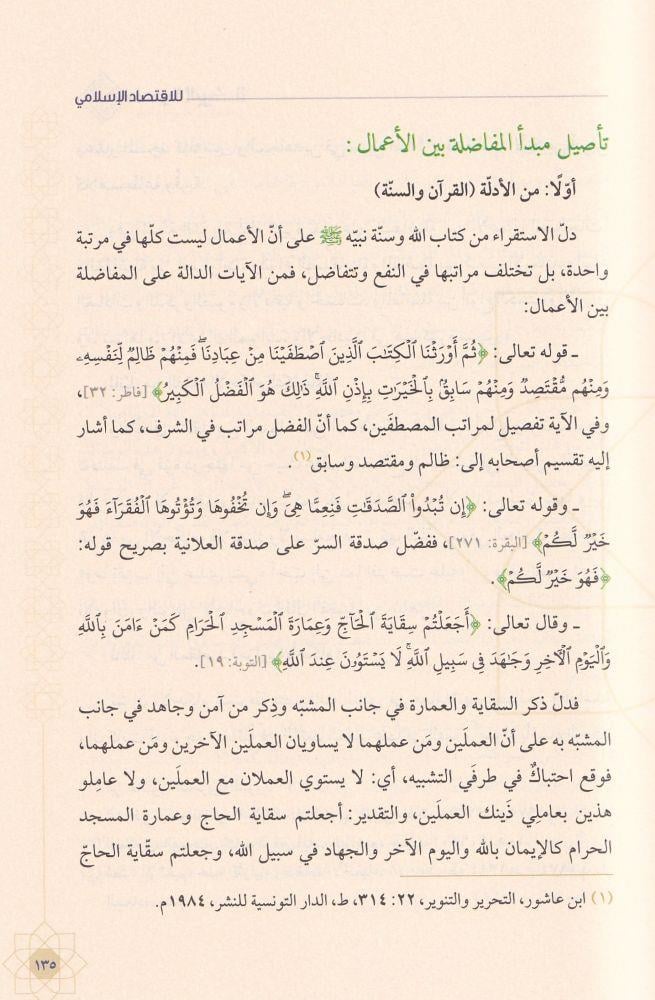 للاقتصاد الإسلامي
تأصيل مبدأ المفاضلة بين الأعمال :
أوّلًا: من الأدلّة (القرآن والسنّة)
دلّ الاستقراء من كتاب الله وسنة نبيّه ﷺ على أنّ الأعمال ليست كلّها في مرتبة
واحدة، بل تختلف مراتبها في النفع وتتفاضل، فمن الآيات الدالة على المفاضلة
بين الأعمال:
ـ قوله تعالى: ﴿ثُمَّ أَوْرَثْنَا ٱلْكِتَٰبَ ٱلَّذِينَ ٱصْطَفَيْنَا مِنْ عِبَادِنَاۖ فَمِنْهُمْ ظَالِمٌ لِّنَفْسِهِۦ
وَمِنْهُم مُّقْتَصِدٌ وَمِنْهُمْ سَابِقٌۢ بِٱلْخَيْرَٰتِ بِإِذْنِ ٱللَّهِۚ ذَٰلِكَ هُوَ ٱلْفَضْلُ ٱلْكَبِيرُ﴾ [فاطر: ٣٢]،
وفي الآية تفصيل لمراتب المصطفَين، كما أنّ الفضل مراتب في الشرف، كما أشار
إليه تقسيم أصحابه إلى: ظالم ومقتصد وسابق(١).
ـ وقوله تعالى: ﴿إِن تُبْدُوا۟ ٱلصَّدَقَٰتِ فَنِعِمَّا هِىَۖ وَإِن تُخْفُوهَا وَتُؤْتُوهَا ٱلْفُقَرَآءَ فَهُوَ
خَيْرٌ لَّكُمْ﴾ [البقرة: ٢٧١]، ففضّل صدقة السرّ على صدقة العلانية بصريح قوله:
﴿فَهُوَ خَيْرٌ لَّكُمْ﴾.
ـ وقال تعالى: ﴿أَجَعَلْتُمْ سِقَايَةَ ٱلْحَآجِّ وَعِمَارَةَ ٱلْمَسْجِدِ ٱلْحَرَامِ كَمَنْ ءَامَنَ بِٱللَّهِ
وَٱلْيَوْمِ ٱلْـَٔاخِرِ وَجَٰهَدَ فِى سَبِيلِ ٱللَّهِۚ لَا يَسْتَوُۥنَ عِندَ ٱللَّهِ﴾ [التوبة: ١٩].
فدلّ ذكر السقاية والعمارة في جانب المشبّه وذِكر من آمن وجاهد في جانب
المشبّه به على أنّ العملَين ومَن عملهما لا يساويان العملَين الآخرين ومَن عملهما،
فوقع احتباكٌ في طرفَي التشبيه، أي: لا يستوي العملان مع العملَين، ولا عامِلو
هذين بعاملي ذَينك العملَين، والتقدير: أجعلتم سقاية الحاج وعمارة المسجد
الحرام كالإيمان بالله واليوم الآخر والجهاد في سبيل الله، وجعلتم سقّاية الحاجّ
(١) ابن عاشور، التحرير والتنوير، ٢٢: ٣١٤، ط، الدار التونسية للنشر، ١٩٨٤م.
١٣٥